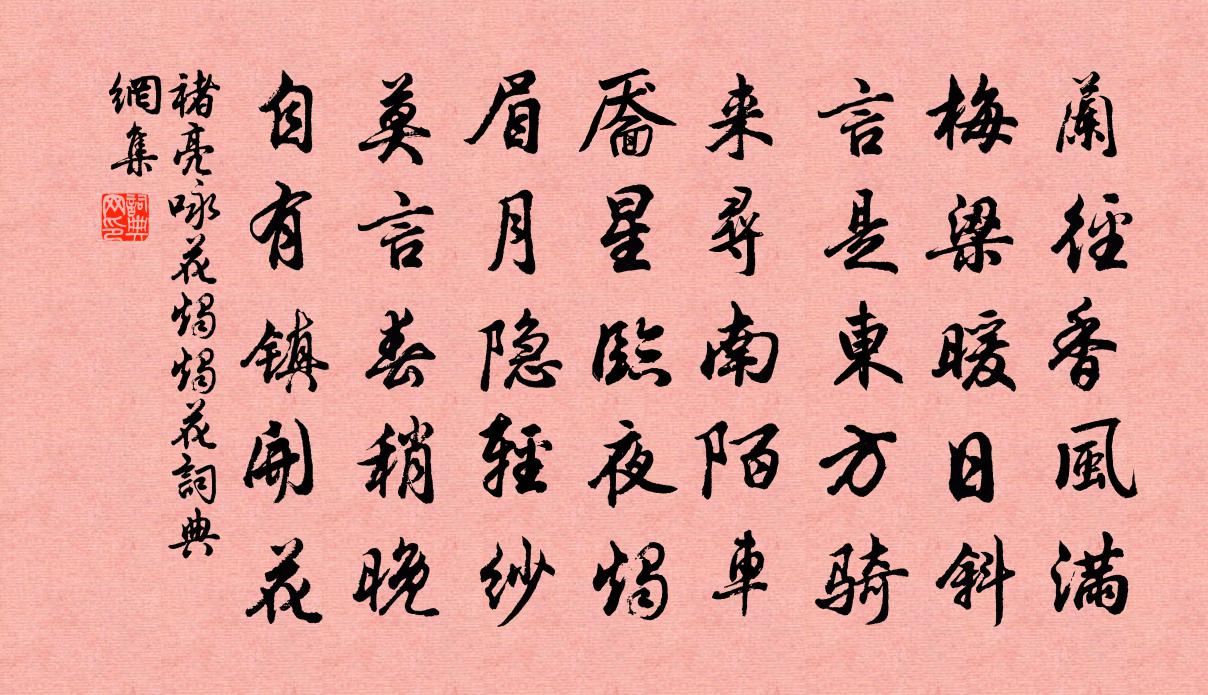 蘭徑香風滿
梅梁暖日斜
言是東方騎
来尋南陌車
靨星臨夜燭
眉月隐輕紗
莫言春稍晚
自有鎮開花
褚亮咏花燭燭花詞典
網集
詞典网印